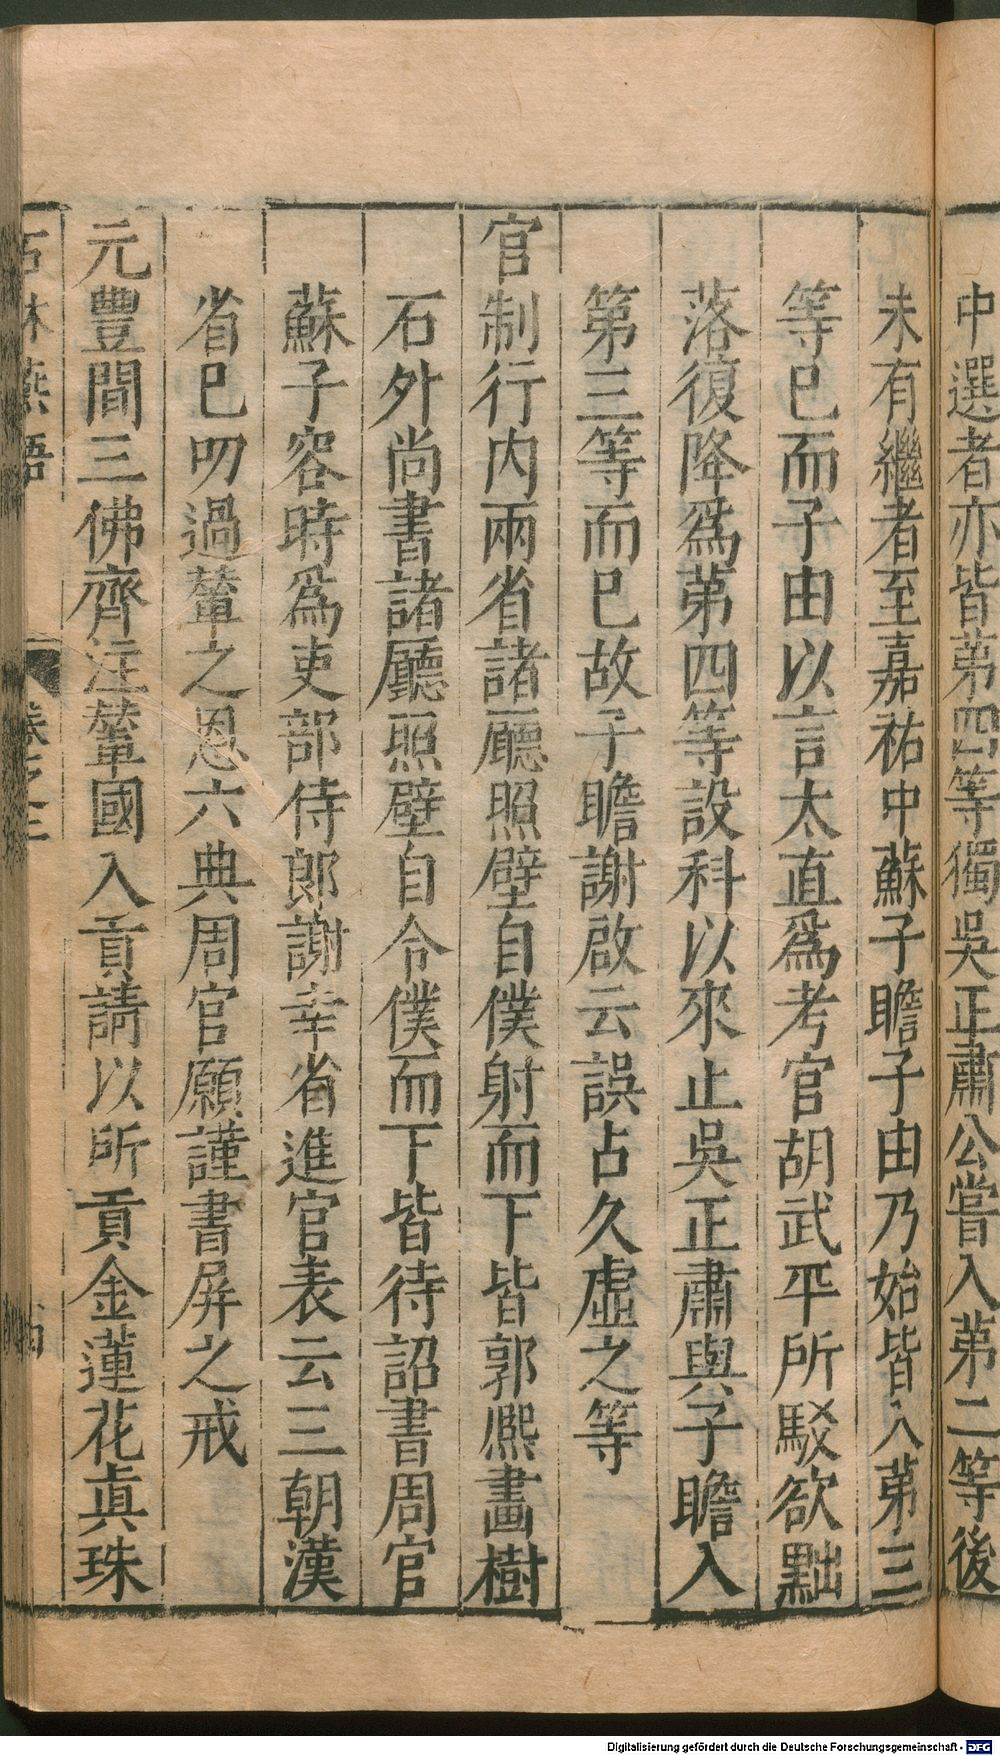 中選者亦皆第四等獨吳正肅公嘗入第二等後
未有繼者至嘉祐中蘇子瞻子由乃始皆入第三
等巳而子由以言太直爲考官胡武平所駁欲黜
落復降爲第四等設科以來止吳正肅與子瞻入
第三等而巳故子瞻謝啟云誤占久虛之等
官制行内兩省諸廳照壁自僕射而下皆郭熈畫樹
石外尚書諸廳照壁自令僕而下皆待詔書周官
蘇子容時爲吏部侍郎謝幸省進官表云三朝漢
省巳叨過輦之恩六典周官願謹書屏之戒
元豐間三佛齊注輦國入貢請以所貢金蓮花眞珠
石林燕語 卷之三
Digitalisierung gefördert durch die Deutsche Forschungsgemeinschaft - DFG